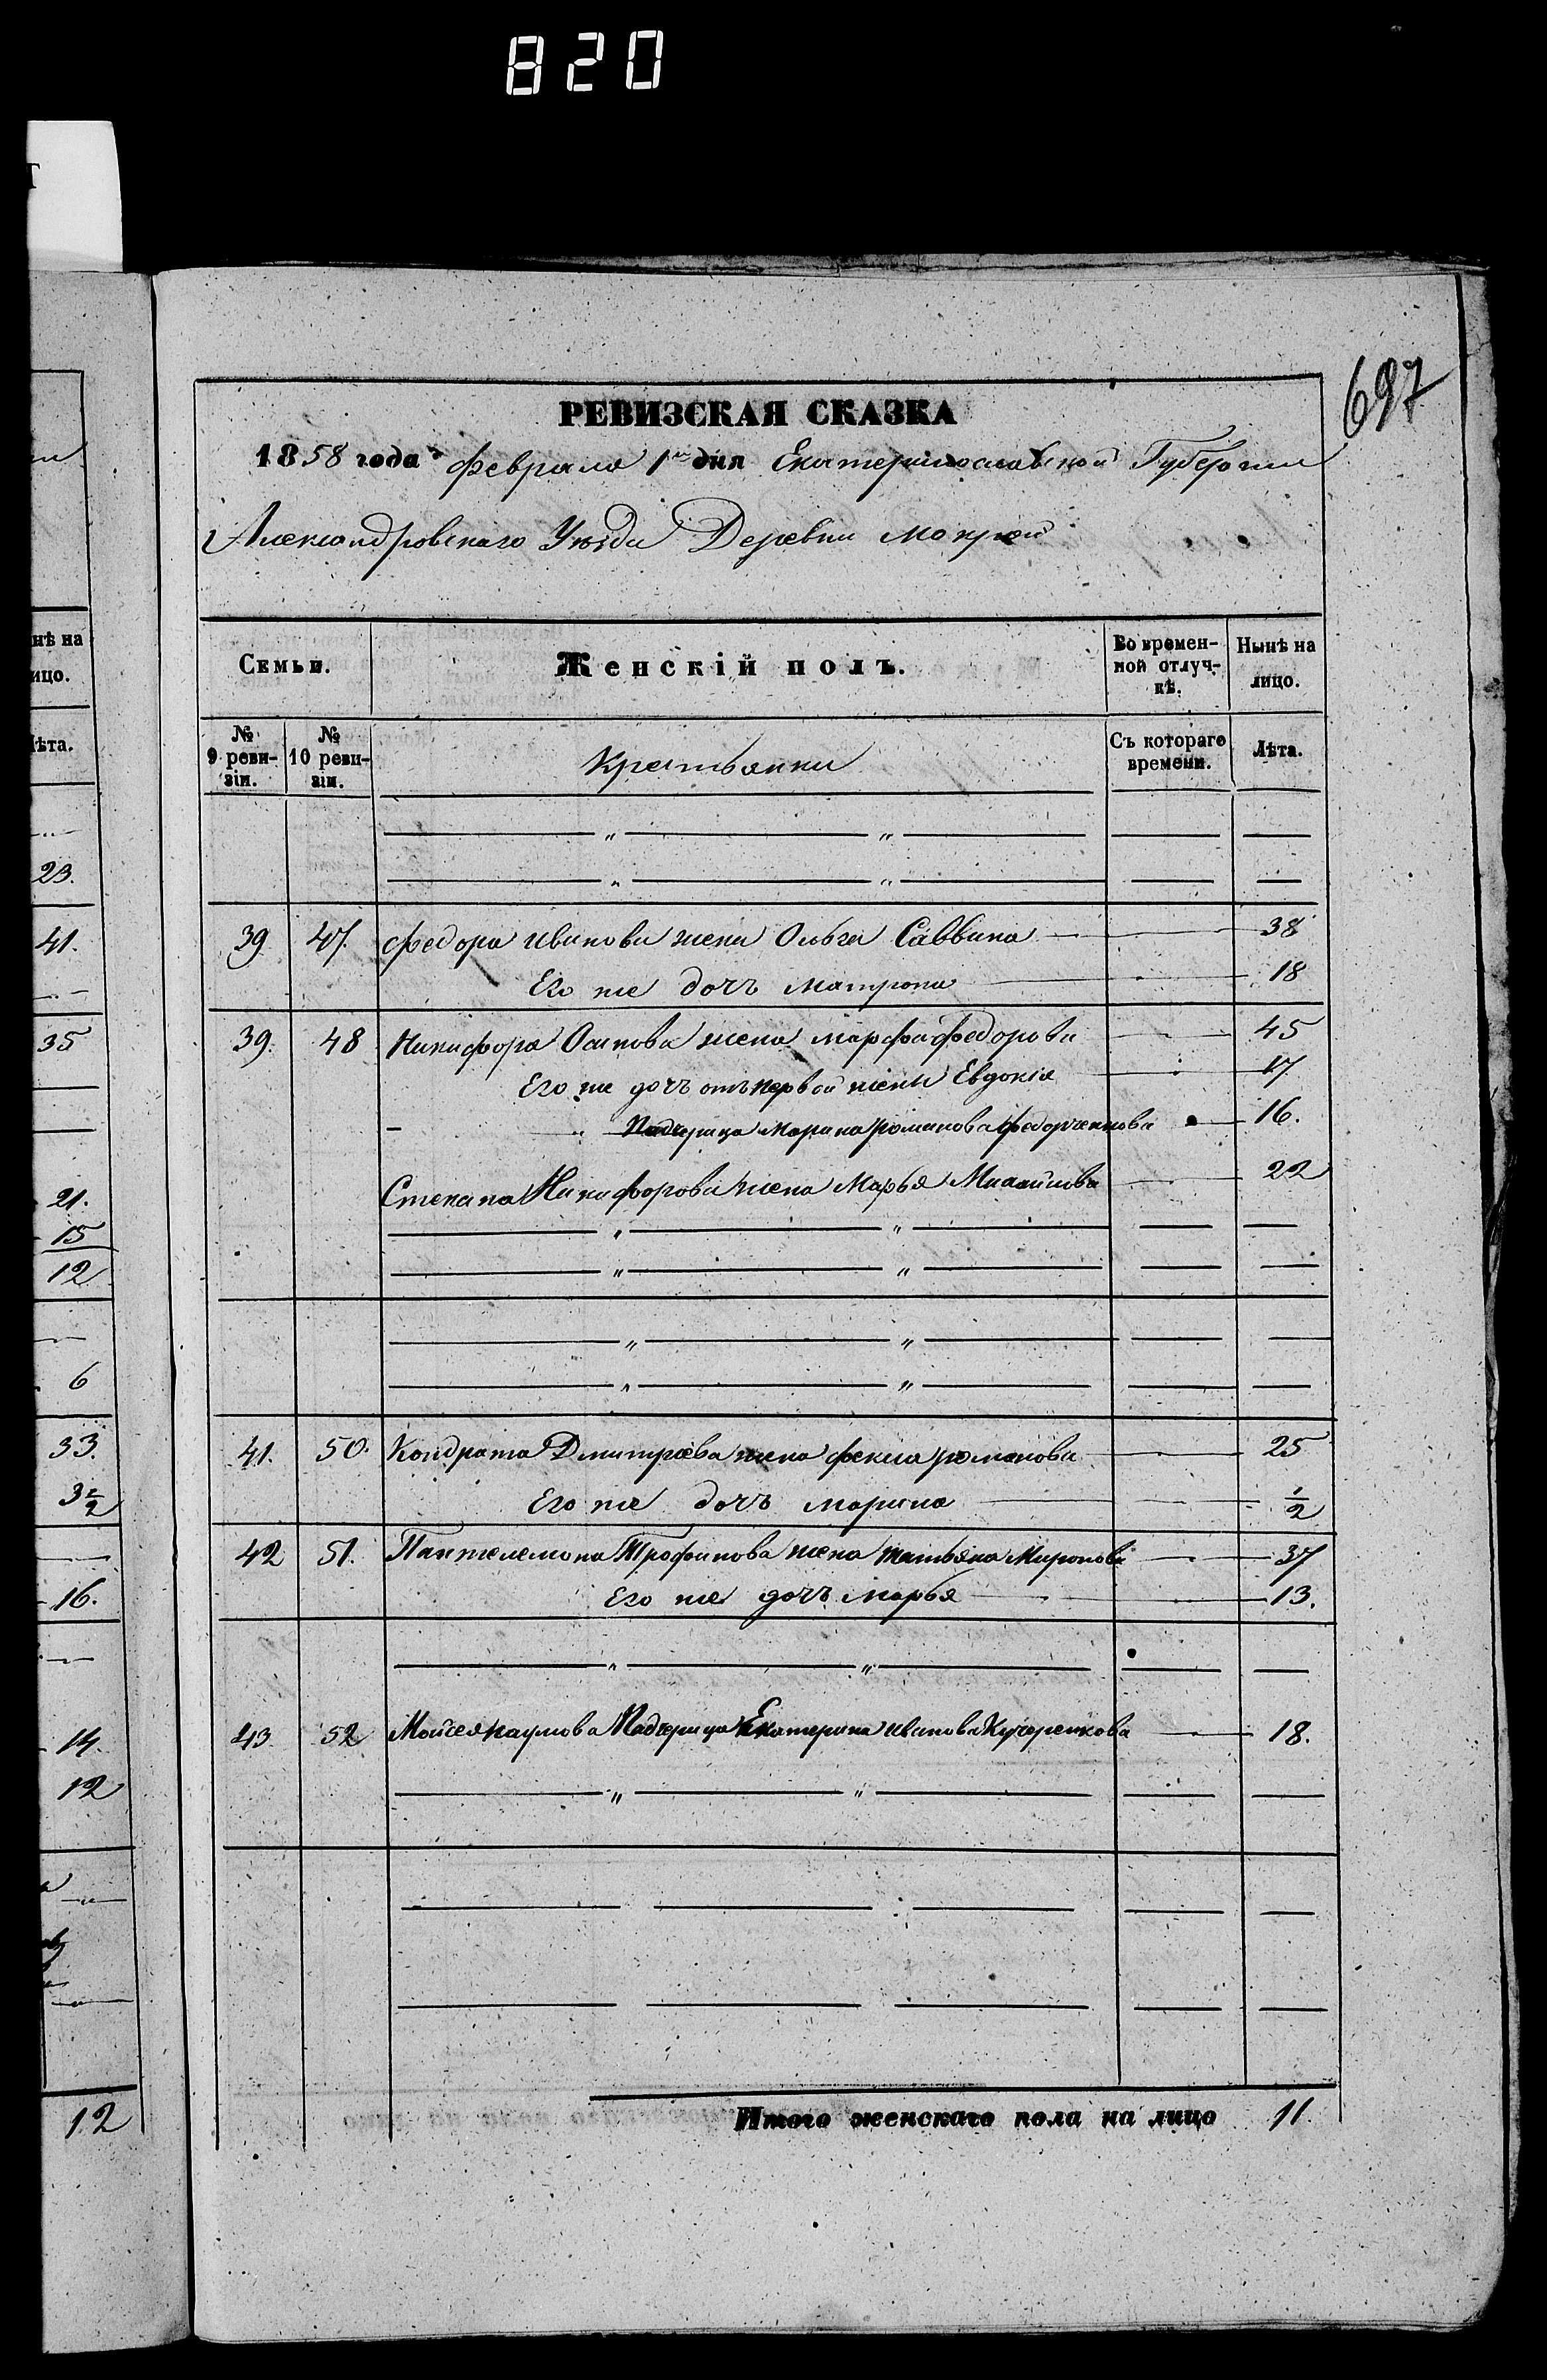 820
697
РЕВИЗСКАЯ СКАЗКА
1858 года Февраля 1го дня Екатеринославской Губернии
Александровскаго Уѣзда Деревни Мокрой
Семьи. Женскій полъ. Во времен-ной отлуч-кѣ. Нынѣ на лицо.
№ 9 реви-зіи. № 10 реви-зіи. Крестьянки Съ котораго времени. Лѣта.
39. 47. Федора Иванова жена Ольга Саввина 38
Его же дочь Матрона 18
39. 48 Никифора Осипова жена Марфа Федорова 45
Его же дочь отъ первой жены Евдокія 17
" Падчерица Марина Романова Федорченкова 16.
Степана Никифорова жена Марья Михайлова 22
41. 50. Кондрата Дмитріева жена Фекла Романова 25
Его же дочь Марина 1/2
42 51. Пантелемона Трофимова жена Татьяна Миронова 37
Его же дочь Марья 13.
43 52 Мойсея Наумова Падчерица Екатерина Иванова Кучеренкова 18.
Итого женскаго пола на лицо 11.
нѣ на
ицо.
ѣта.
23.
41.
35
21.
15
12
6
33.
3 1/2
16.
14.
12
12